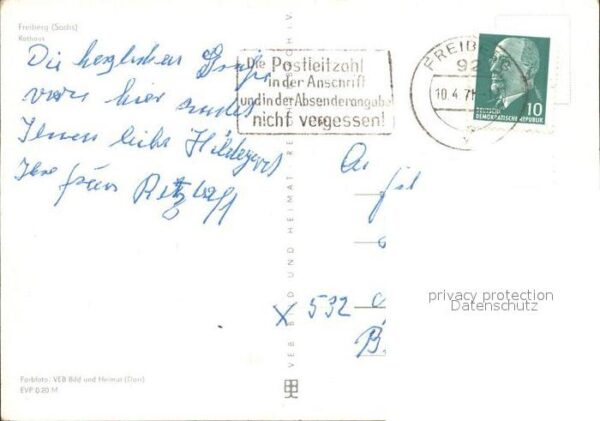 Freiberg (Sachs)
Rathaus
Die herzlichen
von hier sendet
Ihnen liebe Hildegard
Ihre Frau
Farbfoto: VEB Bild und Heimat (Darr)
EVP 0.20 M
VEB BILD UND HEIMAT REICHENBACH I. V.
Die Postleitzahl
in der Anschrift
und in der Absenderangabe
nicht vergessen!
FREIBERG
92
10.4.71
10
DEUTSCHE
DEMOKRATISCHE REPUBLIK
An
X 532
B.
privacy protection
Datenschutz